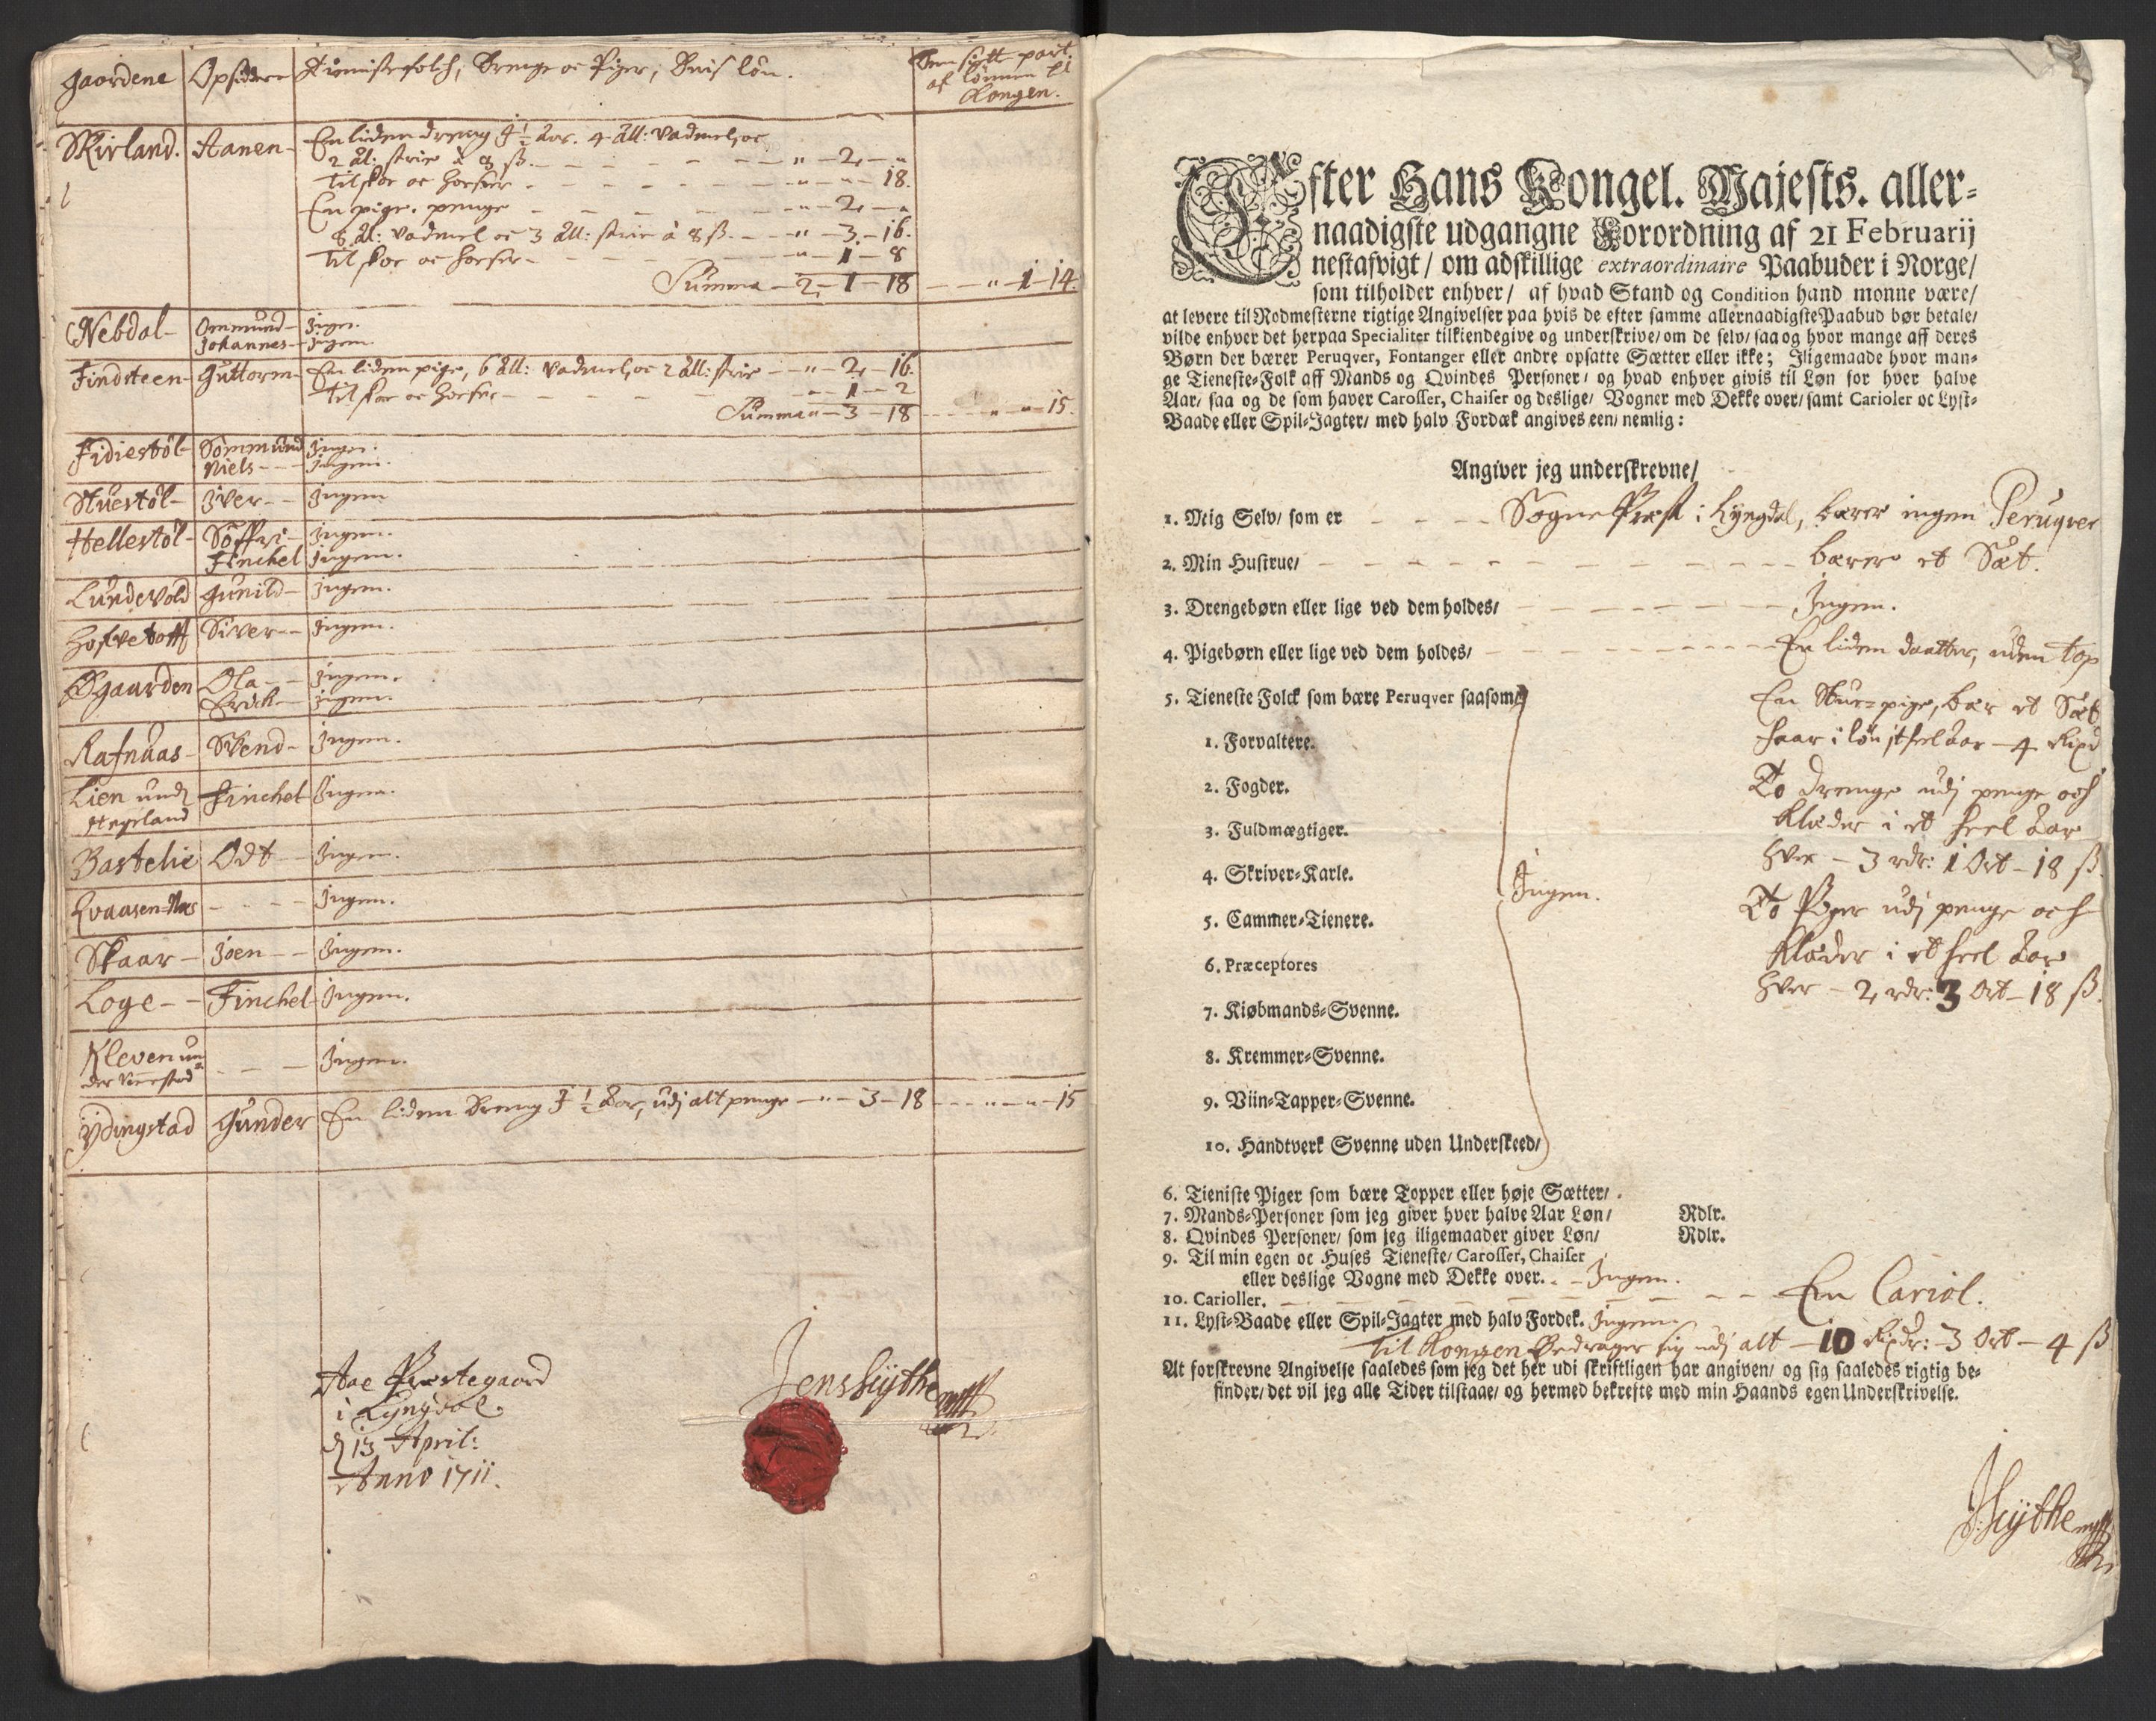 Gaardene Opsidere Tienistefolch, Drenge oc Piger, Deris lön. Den siette part
af lönnen til
Kongen.
Skirland. Aanen - En liden dreng 1/2 aar. 4 all: vadmel, oc
2 al: strie à 8 ß. - - - " - 2 - "
Til skoe oc hoeser. - - - " - " - 18.
En pige. penge - - - " - 2 - "
8 al: vadmel oc 3 all: strie à 8 ß. - - " - 3 - 16.
Til skoe oc hoeser - - - " - 1 - 8
Summa - 2 - 1 - 18 - - " - 1 - 14.
Nebdal - Ommund - Ingen.
Johannes - Ingen.
Findsteen - Guttorm - En liden pige, 6 all: vadmel, oc 2 all: strie - " - 2 - 16.
Til skoe oc hoeser - - - 1 - 2
Summa " - 3 - 18 - - - " - " - 15.
Fidiestöl - Sömmund Ingen.
Niels - - - Ingen.
Stuestöl - Iver - - Ingen
Hellestöl - Söffri - Ingen.
Finchel Ingen.
Lundevold Gunild - Ingen.
Siver - - Ingen.
Øgaarden Ola - - Ingen.
Erich - Ingen.
Rafnaas - Svend - Ingen.
Lien und Finchel Ingen.
Hegeland
Bastelie Odt - Ingen.
Qvaasen-Næs - - - - Ingen.
Skaar - Joen - - Ingen.
Loge - - Finchel - Ingen.
Kleven un - - - Ingen.
der
Ydingstad Gunder En liden dreng 1/2 aar, udj alt penge - " - 3 - 18 - - - " - " - 15
Aae Præstegaard
i Lyngdal.
d 13 April:
Anno 1711.
Jens Lijthe
mpp
Efter Hans Kongel. Majests. aller-
naadigste udgangne Forordning af 21 Februarij
nestafvigt/ om adskillige extraordinaire Paabuder i Norge/
som tilholder enhver/ af hvad Stand og Condition hand monne være/
at levere til Rodmesterne rigtige Angivelser paa hvis de efter samme allernaadigste Paabud bør betale/
vilde enhver det herpaa Specialiter tilkiendegive og underskrive/ om de selv/ saa og hvor mange aff deres
Børn der bærer Peruqver, Fontanger eller andre opsatte Sætter eller ikke; Iligemaade hvor man-
ge Tieneste-Folk aff Mands og Qvindes Personer/ og hvad enhver givis til Løn for hver halve
Aar/ saa og de som haver Carosser, Chaiser og deslige/ Vogner med Dekke over/ samt Carioler oc Lyst-
Baade eller Spil-Jagter/ med halv Fordæk angives een/ nemlig:
Angiver jeg underskrevne/
1. Mig Selv/ som er - - - Sogne Præst i Lyngdal, bærer ingen Peruqver
2. Min Hustrue/ - - - bærer et Sæt.
3. Drengebørn eller lige ved dem holdes/ - - - Ingen.
4. Pigebørn eller lige ved dem holdes/ - - - En liden daatter, uden top
5. Tieneste Folck som bære Peruqver saasom/ En Stue-pige, bær et Sæt
1. Forvaltere. faar i lön it heel aar - 4 Rixd
2. Fogder. To drenge udj penge och
3. Fuldmægtiger. Klæder i et heel aar
hver - 3 rdr: 1 Ort - 18 ß.
4. Skriver-Karle. Ingen. To Piger udj penge och
5. Cammer-Tienere. Klæder i et heel aar
6. Præceptores hver - 2 rdr: 3 Ort - 18 ß.
7. Kiøbmands-Svenne.
8. Kremmer-Svenne.
9. Viin-Tapper-Svenne.
10. Handtverk Svenne uden Underskeed/
6. Tieniste Piger som bære Topper eller høje Sætter/ .
7. Mands-Personer som jeg giver hver halve Aar Løn/ Rdlr.
8. Qvindes Personer/ som jeg iligemaader giver Løn/ Rdlr.
9. Til min egen oc Huses Tieneste/ Carosser, Chaiser
eller deslige Vogne med Dekke over. - - Ingen.
10. Carioller. - - - En Cariol.
11. Lyst-Baade eller Spil-Jagter med halv Fordek. Ingen.
Til Kongen Bedrager sig udj alt - 10 Rixdr: 3 Ort - 4 ß
At forskrevne Angivelse saaledes som jeg det her udi skriftligen har angiven/ og sig saaledes rigtig be-
finder/ det vil jeg alle Tider tilstaae/ og hermed bekrefte med min Haands egen Underskrivelse.
J Lijthe mpp